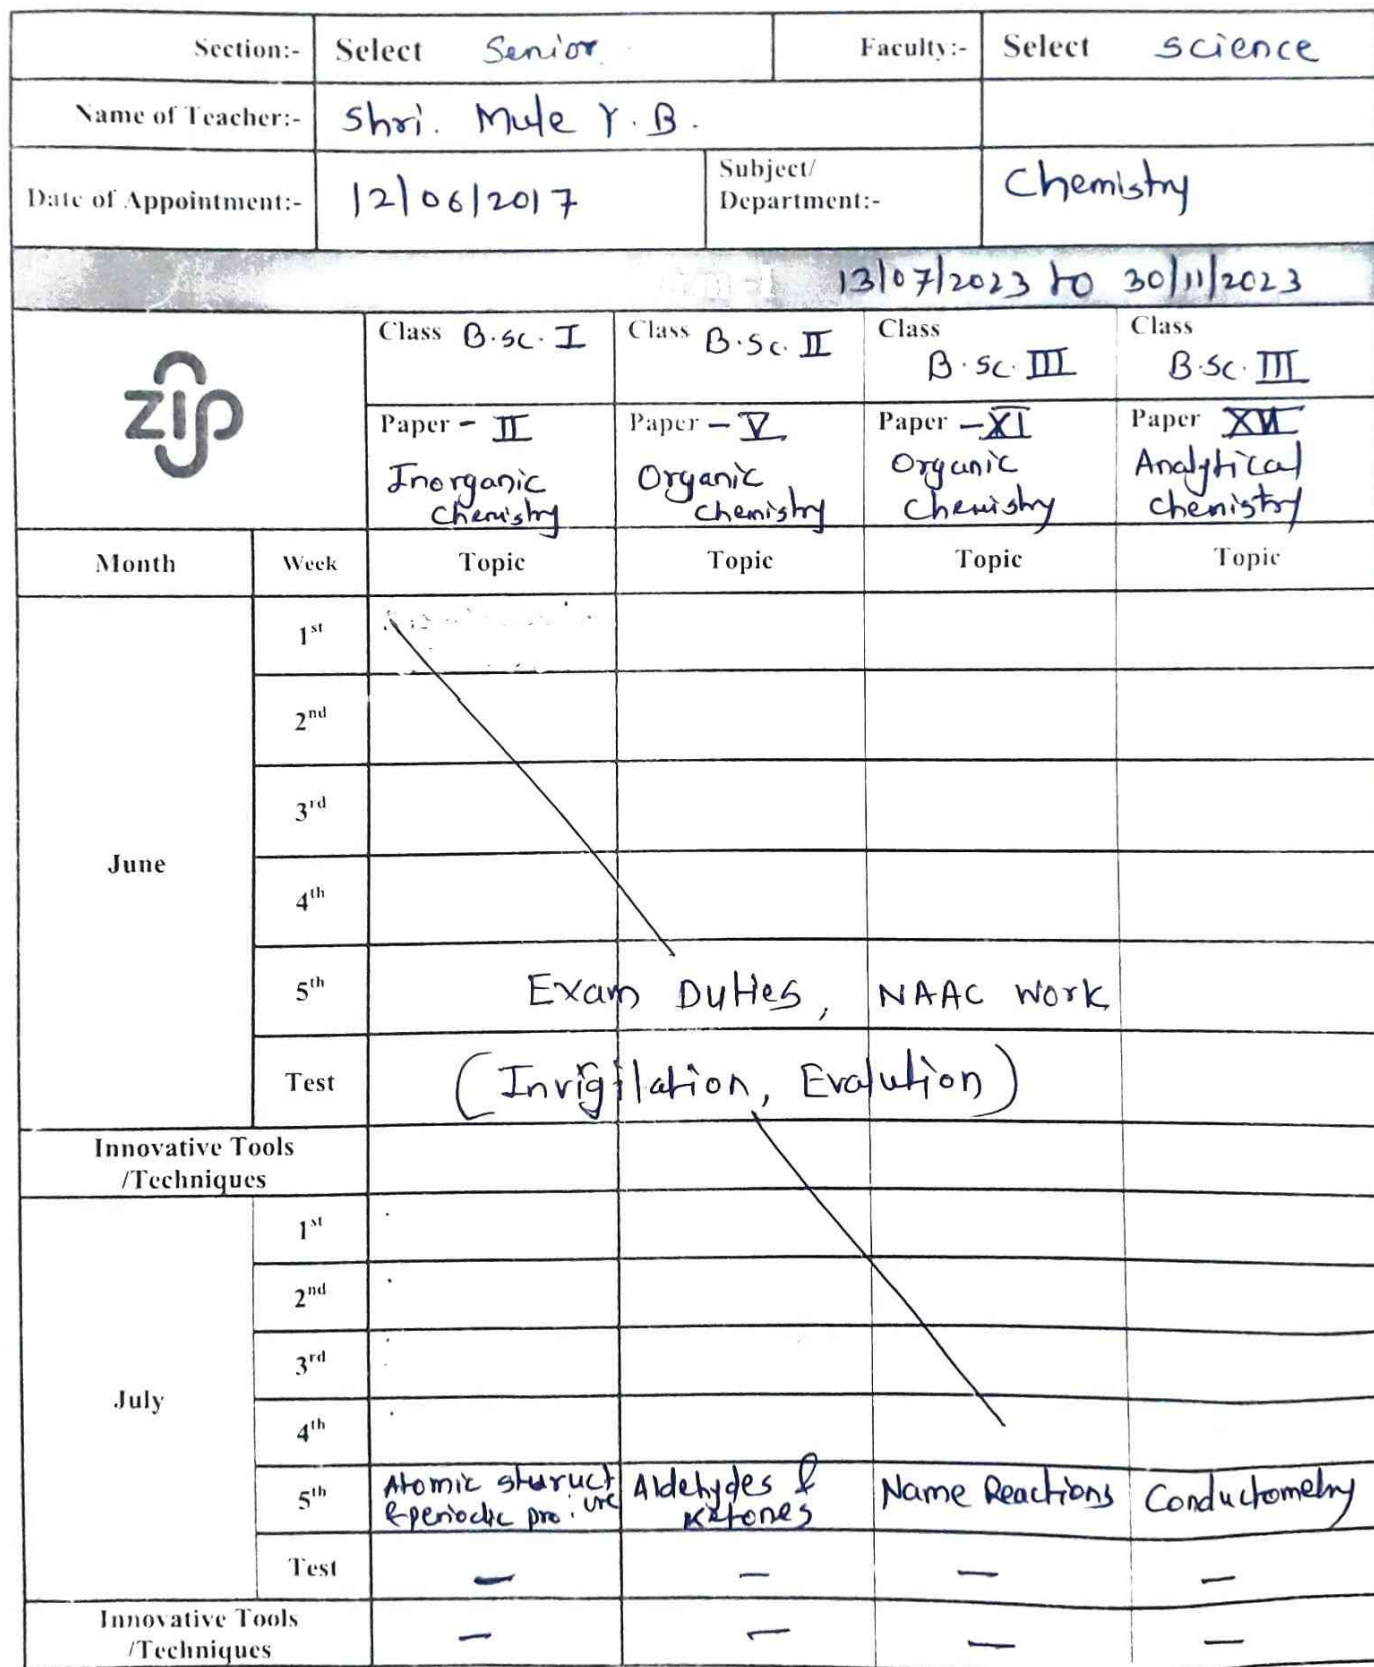 Section:- Select Senior Faculty:- Select science
Name of Teacher:- Shri. Mule Y. B.
Date of Appointment:- 12/06/2017 Subject/ Department:- Chemistry
13/07/2023 to 30/11/2023
zip
Class B.sc. I Class B.Sc. II Class B.sc. III Class B.sc. III
Paper - II Paper - V Paper - XI Paper
Inorganic Organic Organic Analytical
chemistry chemistry chemistry chemistry
Month Week Topic Topic Topic Topic
June
1st
2nd
3rd
4th
5th Exam Duties, NAAC Work
Test (Invigilation, Evalution)
Innovative Tools
/Techniques
July
1st
2nd
3rd
4th
5th Atomic sturucture &periodic pro. Aldehydes & Ketones Name Reactions Conductometry
Test — — — —
Innovative Tools
/Techniques — — — —